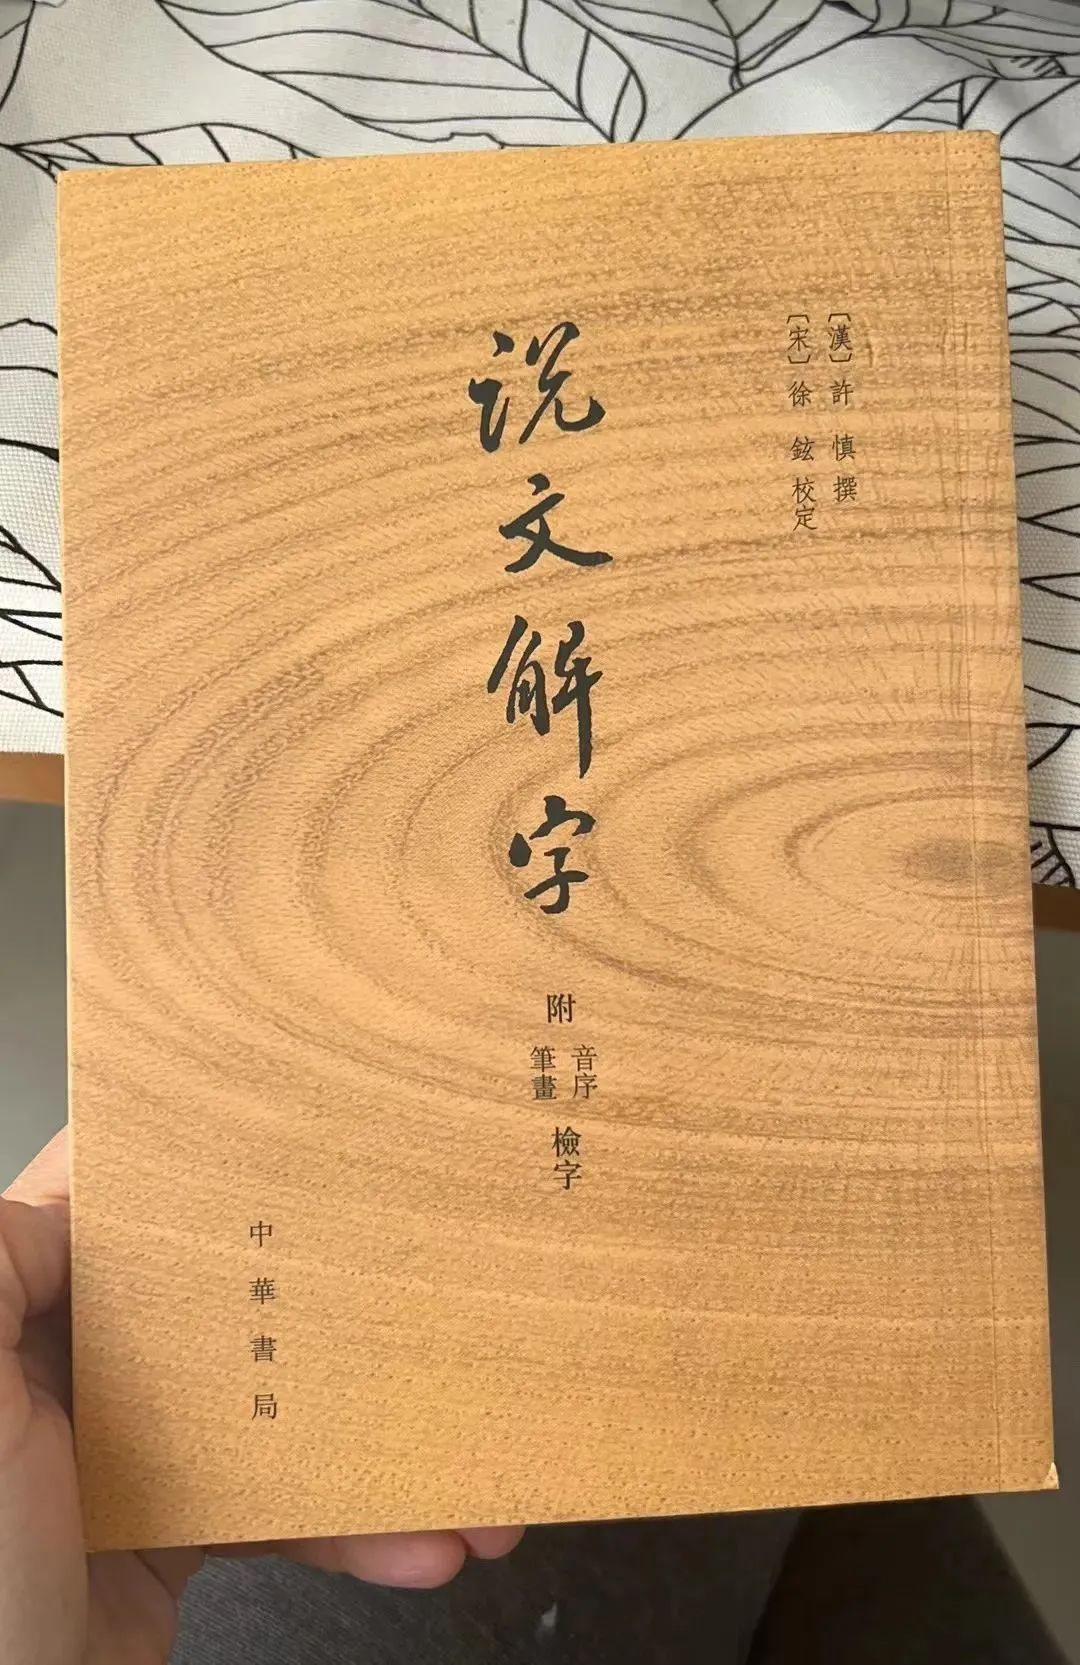 〔漢〕許慎撰
〔宋〕徐鉉校定
说文解字
附
音序
筆畫
檢字
中華書局